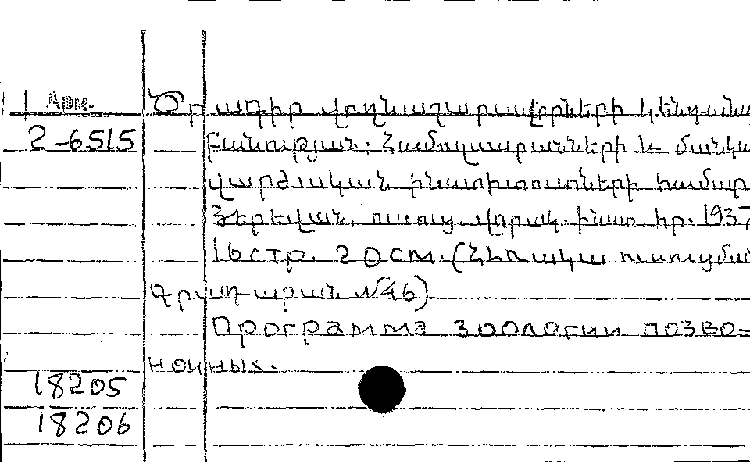 Арм. Ծրագիր վողնաշարավորների կենդանա
2-6515 բանության: Համալսարանների և մանկա
վարժական ինստիտուտների համար
Յերեվան, ուսուց. վորակ. ինստ հր. 1937
16стр. 20см. (Հեռակա ուսուցման
գրադարան №46)
Программа зоологии позво-
ночных.
18205
18206